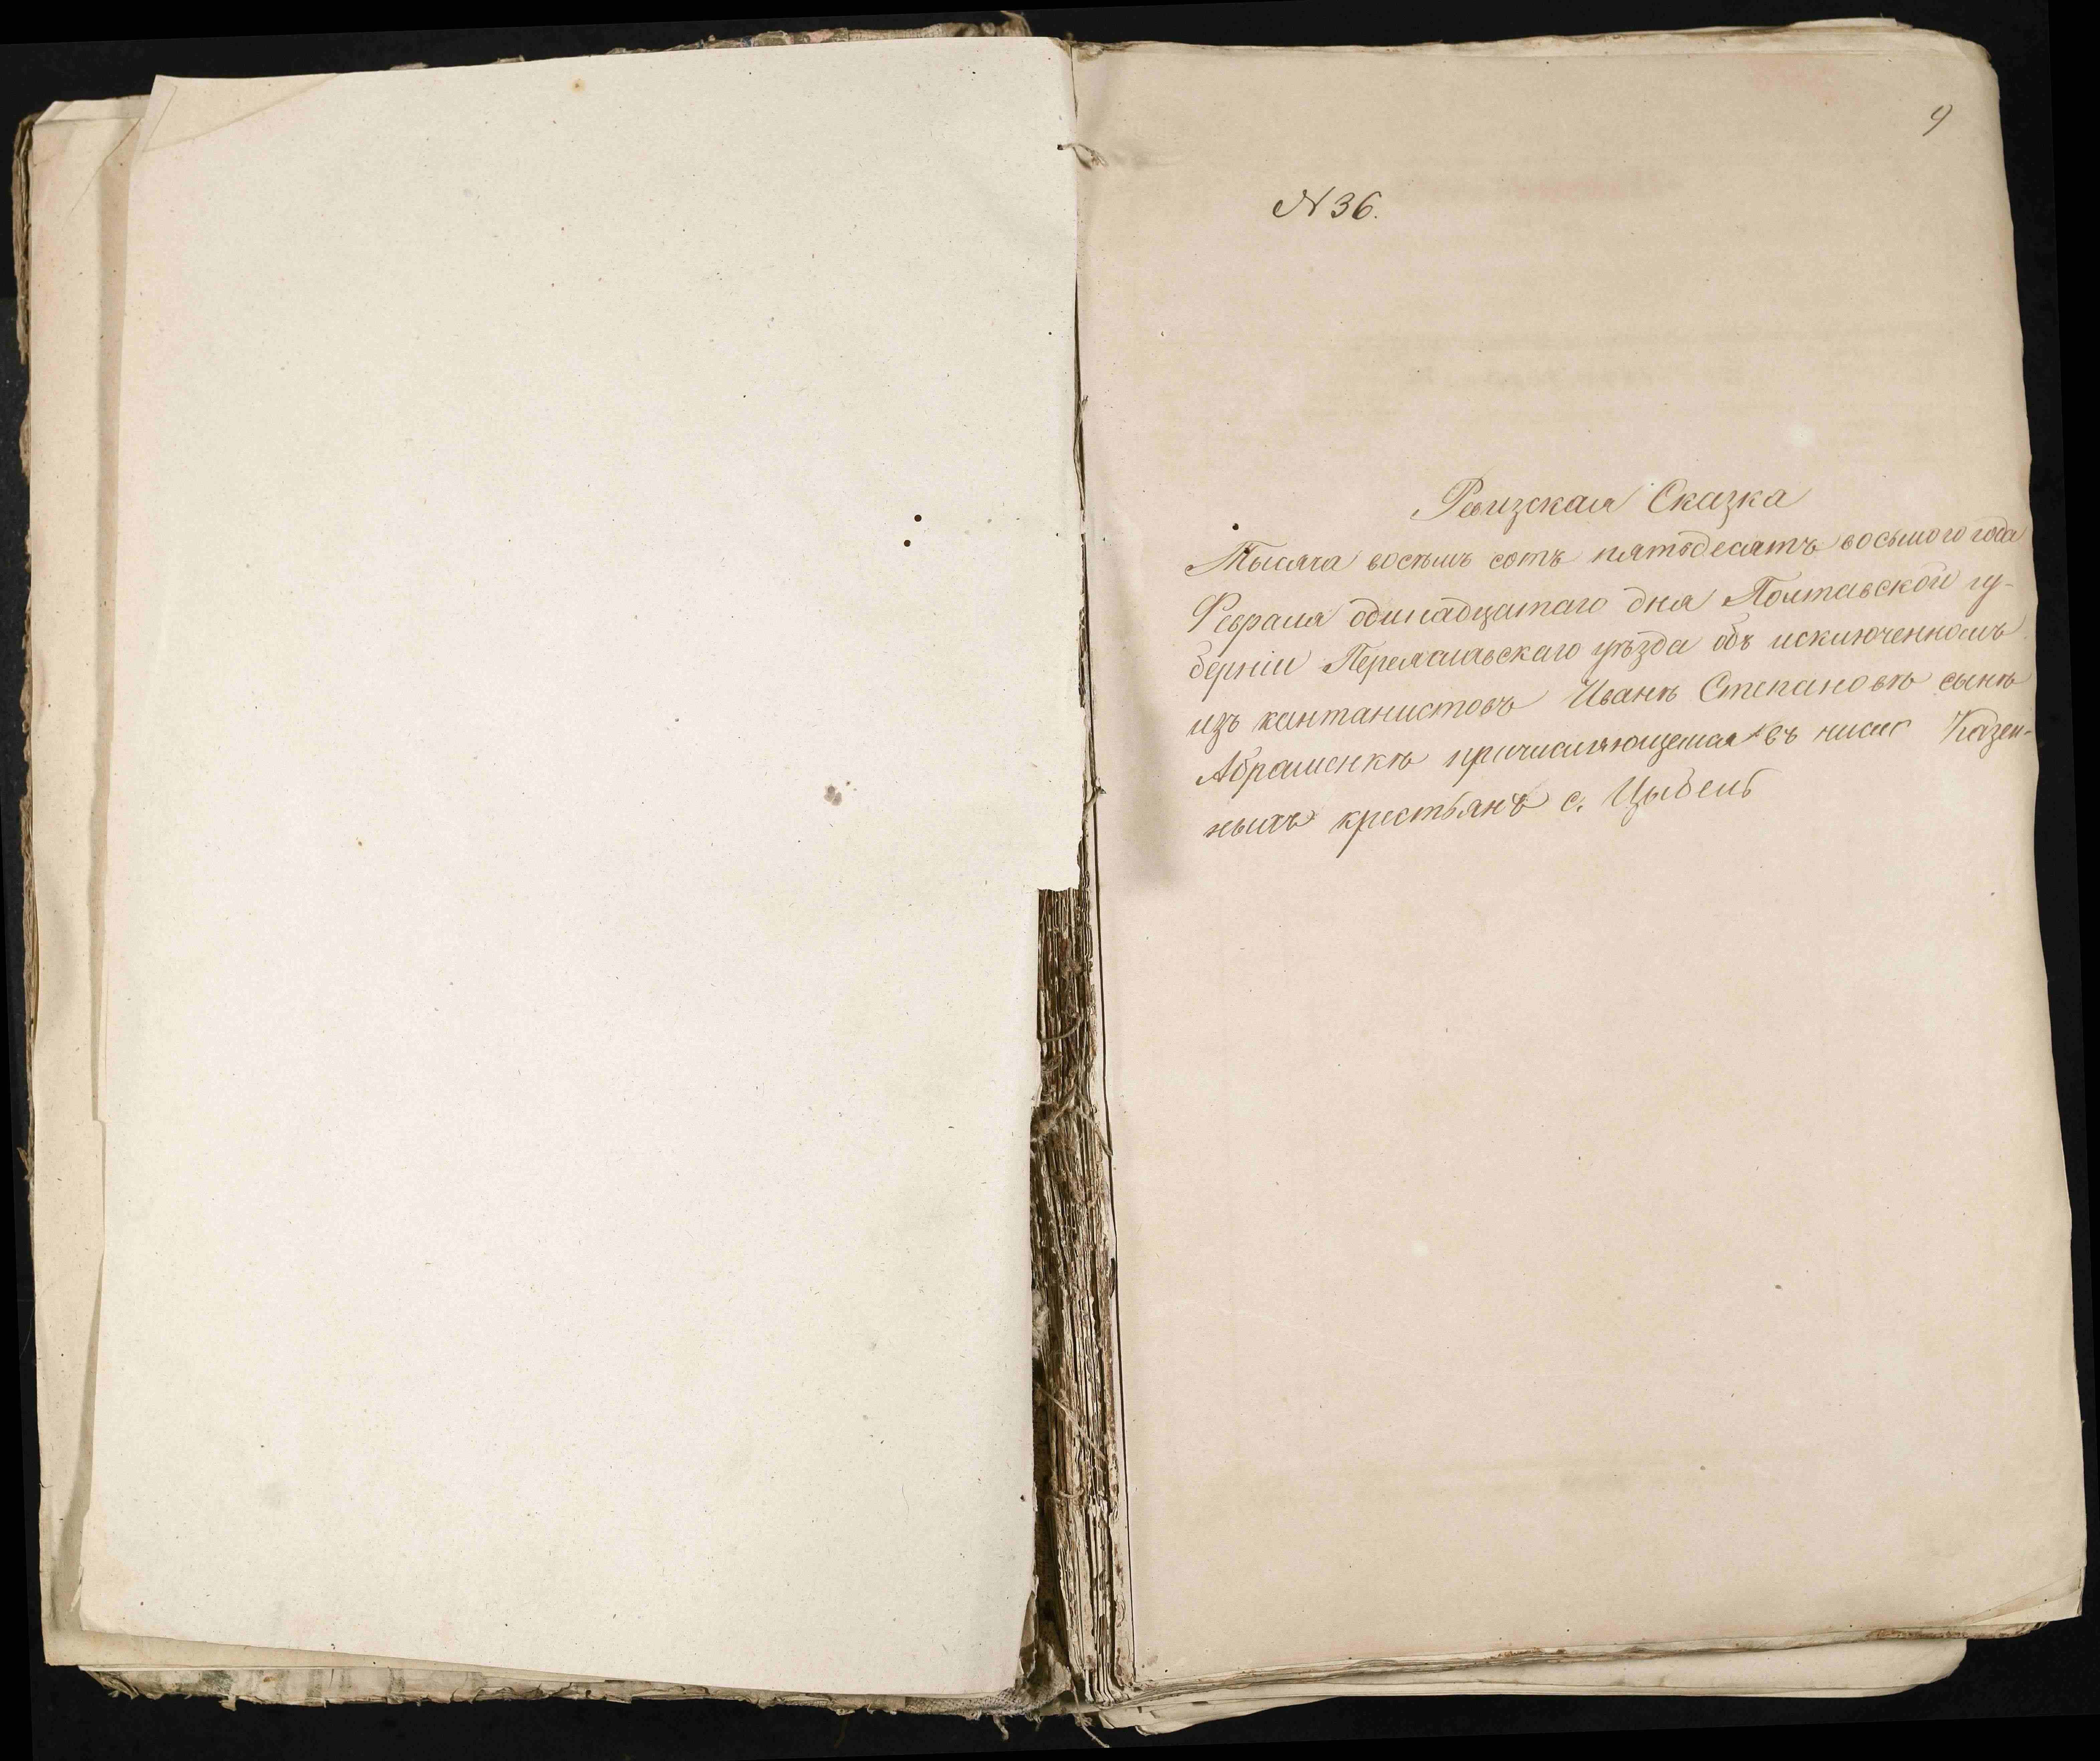 9
N 36.
Ревизская Сказка
Тысяча восемь сотъ пятьдесятъ восьмого года
Февраля одинадцатаго дня Полтавской гу-
берніи Переяславскаго уѣзда объ исключенномъ
изъ кантанистовъ Иванѣ Степановѣ сынѣ
Абраменкѣ причисляющемся въ число Казен-
ныхъ крестьянъ с. Цыбель